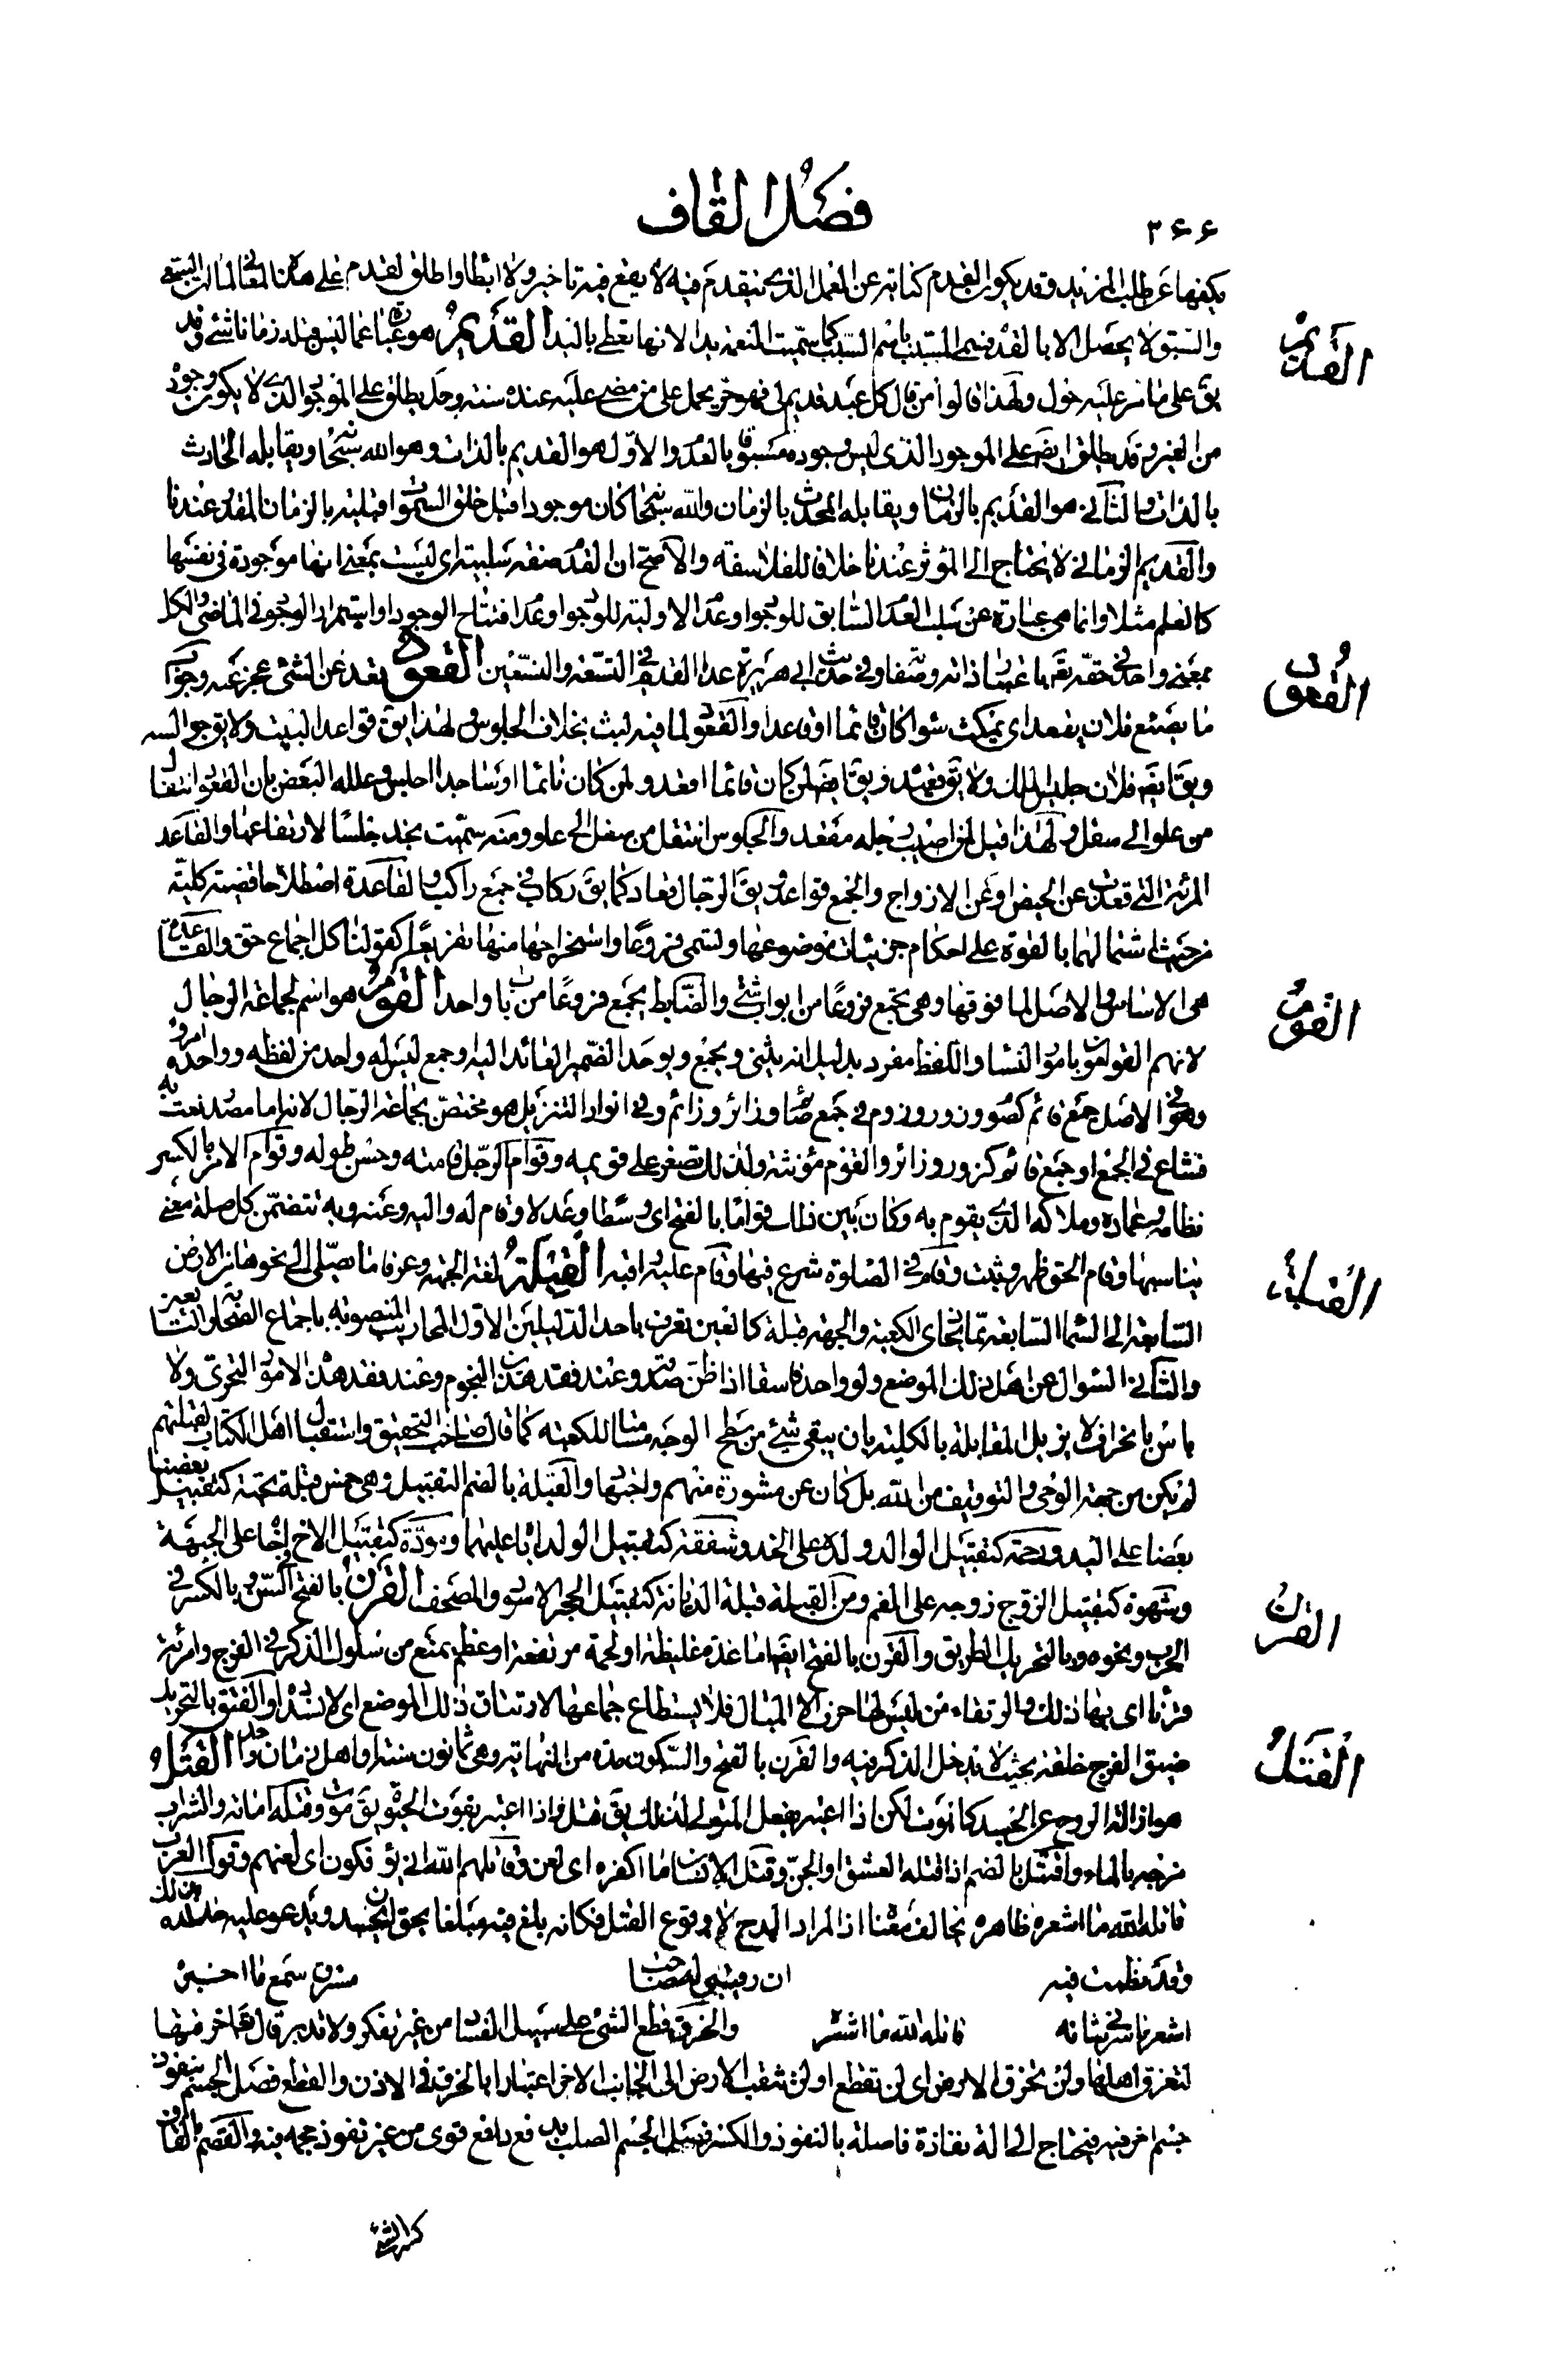 ٣۶۶
فصل القاف
يكفها عن طلب المزيد وقد يكون القدم كناية عن العمل الذي يتقدم فيه لا يقع فيه تاخير ولا ابطا واطلاق لقدم على هذا المعنى لما ان السعى
والسبق لا يحصل الا بالقدم فسمى المسبب باسم السبب كما سميت النعمة يدا لانها تعطى باليد القديم هو عبارة عما ليس قبله زمانا شئ وقد
يق على ما مر عليه حول ولهذا قالوا من قال كل عبد قديم لى فهو حر يحمل على من مضى عليه عنده سنة وحد يطلق على الموجود الذي لا يكون وجوده
من الغير وقد يطلق ايضا على الموجود الذى ليس وجوده مسبوقا بالعدم والاول هو القديم بالذات وهو الله سبحا ويقابله الحادث
بالذات والثانى هو القديم بالزمان ويقابله المحدث بالزمان والله سبحا كان موجودا قبل خلق السموا قبلية بالزمان المقدر عندنا
والقديم الزمانى لا يحتاج الى المؤثر عندنا خلافا للفلاسفة والاصح ان القدم صفة سلبية اى ليست بمعنى انها موجودة في نفسها
كالعلم مثلا وانما هى عبارة عن سلب العدم السابق للوجود او عدم الاولية للوجود او عدم افتتاح الوجود او استمرار الوجود في الماضى والكل
بمعنى واحد في حقه تع باعتبا ذاته وصفا وفي حديث ابى هريرة عد القديم في التسعة والتسعين القعود قعد عن الشئ عجز عنه وجواب
ما يصنع فلان يقعد اى يمكث سوا كان قائما او قاعدا والقعود لما فيه لبث بخلاف الجلوس ولهذا يق قواعد البيت ولا يق جوالسه
ويق ايضا فلان جليس الملك ولا يق قعيده ويق ايضا لمن كان قائما اقعد ولمن كان نائما او ساجدا اجلس وعلله البعض بان القعود انتقال
من علو الى سفل ولهذا قيل لمن اصيب برجله مقعد والجلوس انتقل من سفل الى علو ومنه سميت نجد جلسا لارتفاعها والقاعد
المرئة التى قعدت عن الحيض او عن الازواج والجمع قواعد ويق الرجال قعاد كما يق ركاب في جمع راكب والقاعدة اصطلاحا قضية كلية
من حيث اشتمالها بالقوة على احكام جزئيات موضوعها وتسمى فروعا واستخراجها منها تفريعا كقولنا كل اجماع حق والقاعدة
هى الاساس والاصل لما فوقها وهى تجمع فروعا من ابواب شتى والضابط يجمع فروعا من باب واحد القوم هو اسم لجماعة الرجال
لانهم القوامون بامور النسا واللفظ مفرد بدليل انه يثنى ويجمع ويوحد الضمير العائد اليه وجمع ليس له واحد من لفظه وواحده امرؤ
وهو في الاصل جمع قائم كصوم وزور وزوم في جمع صائم وزائر وزائم وفى انوار التنزيل هو مختص بجماعة الرجال لانه اما مصدر نعت به
فشاع في الجمع او جمع قائم كزور وزائر والقوم مؤنثة ولذلك تصغر على قويمة وقوام الرجل قامته وحسن طوله وقوام الامر بالكسر
نظامه وعماده وملاكه الذى يقوم به وكان بين ذلك قواما بالفتح اى وسطا وعدلا وقام له واليه وعنه وبه تتضمن كل صلة معنى
يناسبها وقام الحق ظهر وثبت وقام في الصلوة شرع فيها وقام عليه راقبه القبلة لغة الجهة وعرفا ما يصلى الى نحوها من الارض
السابعة الى السما السابعة مما يحاذى الكعبة والجهة قبلة كالعين تعرف باحد الدليلين الاول المحاريب المنصوبة باجماع الصحابة والتابعين
والثانى السؤال عن اهل ذلك الموضع ولو واحدا فاسقا اذا ظن صدقه وعند فقد هذين النجوم وعند فقد هذه الامور التحرى ولا
باس بانحراف لا يزيل المقابلة بالكلية بان يبقى شئ من سطح الوجه مسامتا للكعبة كما قال صاحب التحقيق واستقبال اهل الكتاب لقبلتهم
لم يكن من جهة الوحى والتوقيف من الله بل كان عن مشورة منهم واجتها والقبلة بالضم التقبيل وهى خمس قبلة تحية كتقبيل بعضنا
بعضا على اليد ورحمة كتقبيل الوالد ولده على الخد وشفقة كتقبيل الولد ابا عليهما ومودة كتقبيل الاخ اخا على الجبهة
وشهوة كتقبيل الزوج زوجه على الفم ومن القبلة قبلة الديانة كتقبيل الحجر الاسود والمصحف القرن بالفتح السن وبالكسر في
الحرب ونحوه وبالتحريك الطريق والقرن بالفتح ايضا اما غدة غليظة او لحمة مرتفعة او عظم يمنع من سلوك الذكر في الفرج وامرئة
قرنا اى بها ذلك والرتقاء من ليس لها خرق الا المبال فلا يستطاع جماعها لارتتاق ذلك الموضع اى لانسداده والفتق بالتحريك
ضيق الفرج خلقة بحيث لا يدخل الذكر فيه والقرن بالفتح والسكون مدة من الزمان وهى ثمانون سنة او اهل زمان واحد القتل
هو ازالة الروح عن الجسد كالموت لكن اذا اعتبر بفعل المتولى لذلك يق قتل واذا اعتبر بفوت الحيوة يق موت وقتله اماته والشراب
مزجه بالماء واقتتل بالضم اذا قتله العشق او الجن وقتل الانسان ما اكفره اى لعن وقاتلهم الله انى يؤفكون اى لعنهم وقول العرب
قاتله الله ما اشعره ظاهره يخالف معناه اذ المراد المدح لا وقوع القتل فكانه بلغ فيه مبلغا يحق ان يحسد ويدعو عليه حاسده
وقد نظمت فيه ان رقيبى له صاحب مشرق سمع ما احسنه
اشعر ناس في شانه قاتله الله ما اشعر والخرق قطع الشئ على سبيل الفساد من غير تفكر ولا تدبر قال تع اخرقتها
لتغرق اهلها ولن تخرق الارض اى لن تقطع او لن تثقب الارض الى الجانب الاخر اعتبارا بالخرق في الاذن والقطع فصل الجسم بنفوذ
جسم اخر فيه فيحتاج الى الة نفاذة فاصلة بالنفوذ والكسر فصل الجسم الصلب بدفع دافع قوى من غير نفوذ حجمه فيه والقصم بالقاف
كسر الشئ
القديم
القعود
القوم
القبلة
القرن
القتل